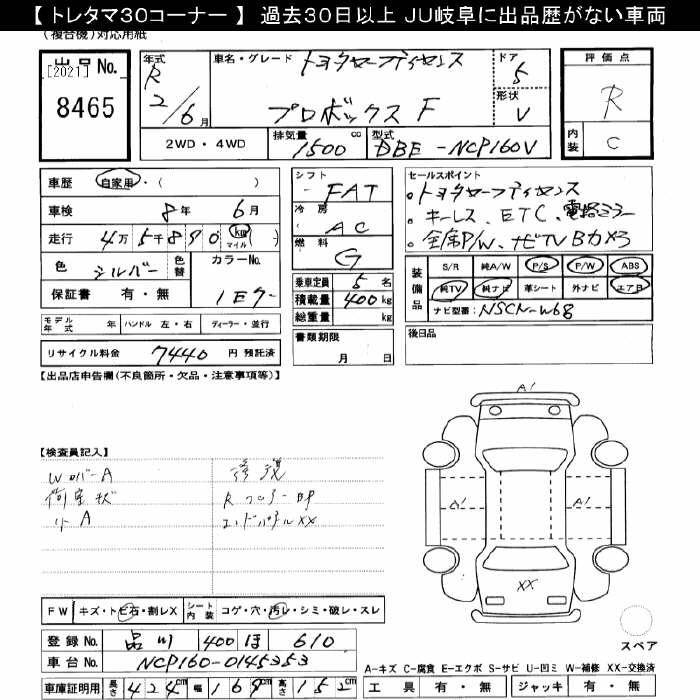 【 トレタマ30コーナー 】 過去30日以上 JU岐阜に出品歴がない車両
(複合機)対応用紙
出品No.
[2021]
8465
年式
R
2/6月
車名・グレード
トヨタセーフティセンス
プロボックス F
ドア
5
形状
V
評価点
R
内装
C
2WD・4WD
排気量
1500 cc
型式
DBE-NCP160V
車歴 自家用・( )
車検 8年 6月
走行 4万5千890 km マイル ( )
色 シルバー 色替 カラーNo.
1E7
保証書 有・無
モデル年式 年 ハンドル 左・右 ディーラー・並行
リサイクル料金 7440 円 預託済
シフト
FAT
冷房
AC
燃料
G
乗車定員 5 名
積載量 400 kg
総重量 kg
書類期限
月 日
セールスポイント
。トヨタセーフティセンス
。キーレス、ETC、電格ミラー
。全席P/W、ナビTV Bカメラ
装備品
S/R 純A/W P/S P/W ABS
純TV 純ナビ 革シート 外ナビ エアB
ナビ型番: NSCN-W68
後日品
【出品店申告欄(不良箇所・欠品・注意事項等)】
【検査員記入】
WカバーA
荷室状
リA
修復
Rフロアー
エンドパネルXX
A1
A1
A1
XX
スペア
FW キズ・トビ石・割レX シート内装 コゲ・穴・汚レ・シミ・破レ・スレ
登録No. 品川 400 ほ 610
車台No. NCP160-0145353
車庫証明用 長さ 424cm 幅 169cm 高さ 152cm
A-キズ C-腐食 E-エクボ S-サビ U-凹ミ W-補修 XX-交換済
工具 有・無 ジャッキ 有・無